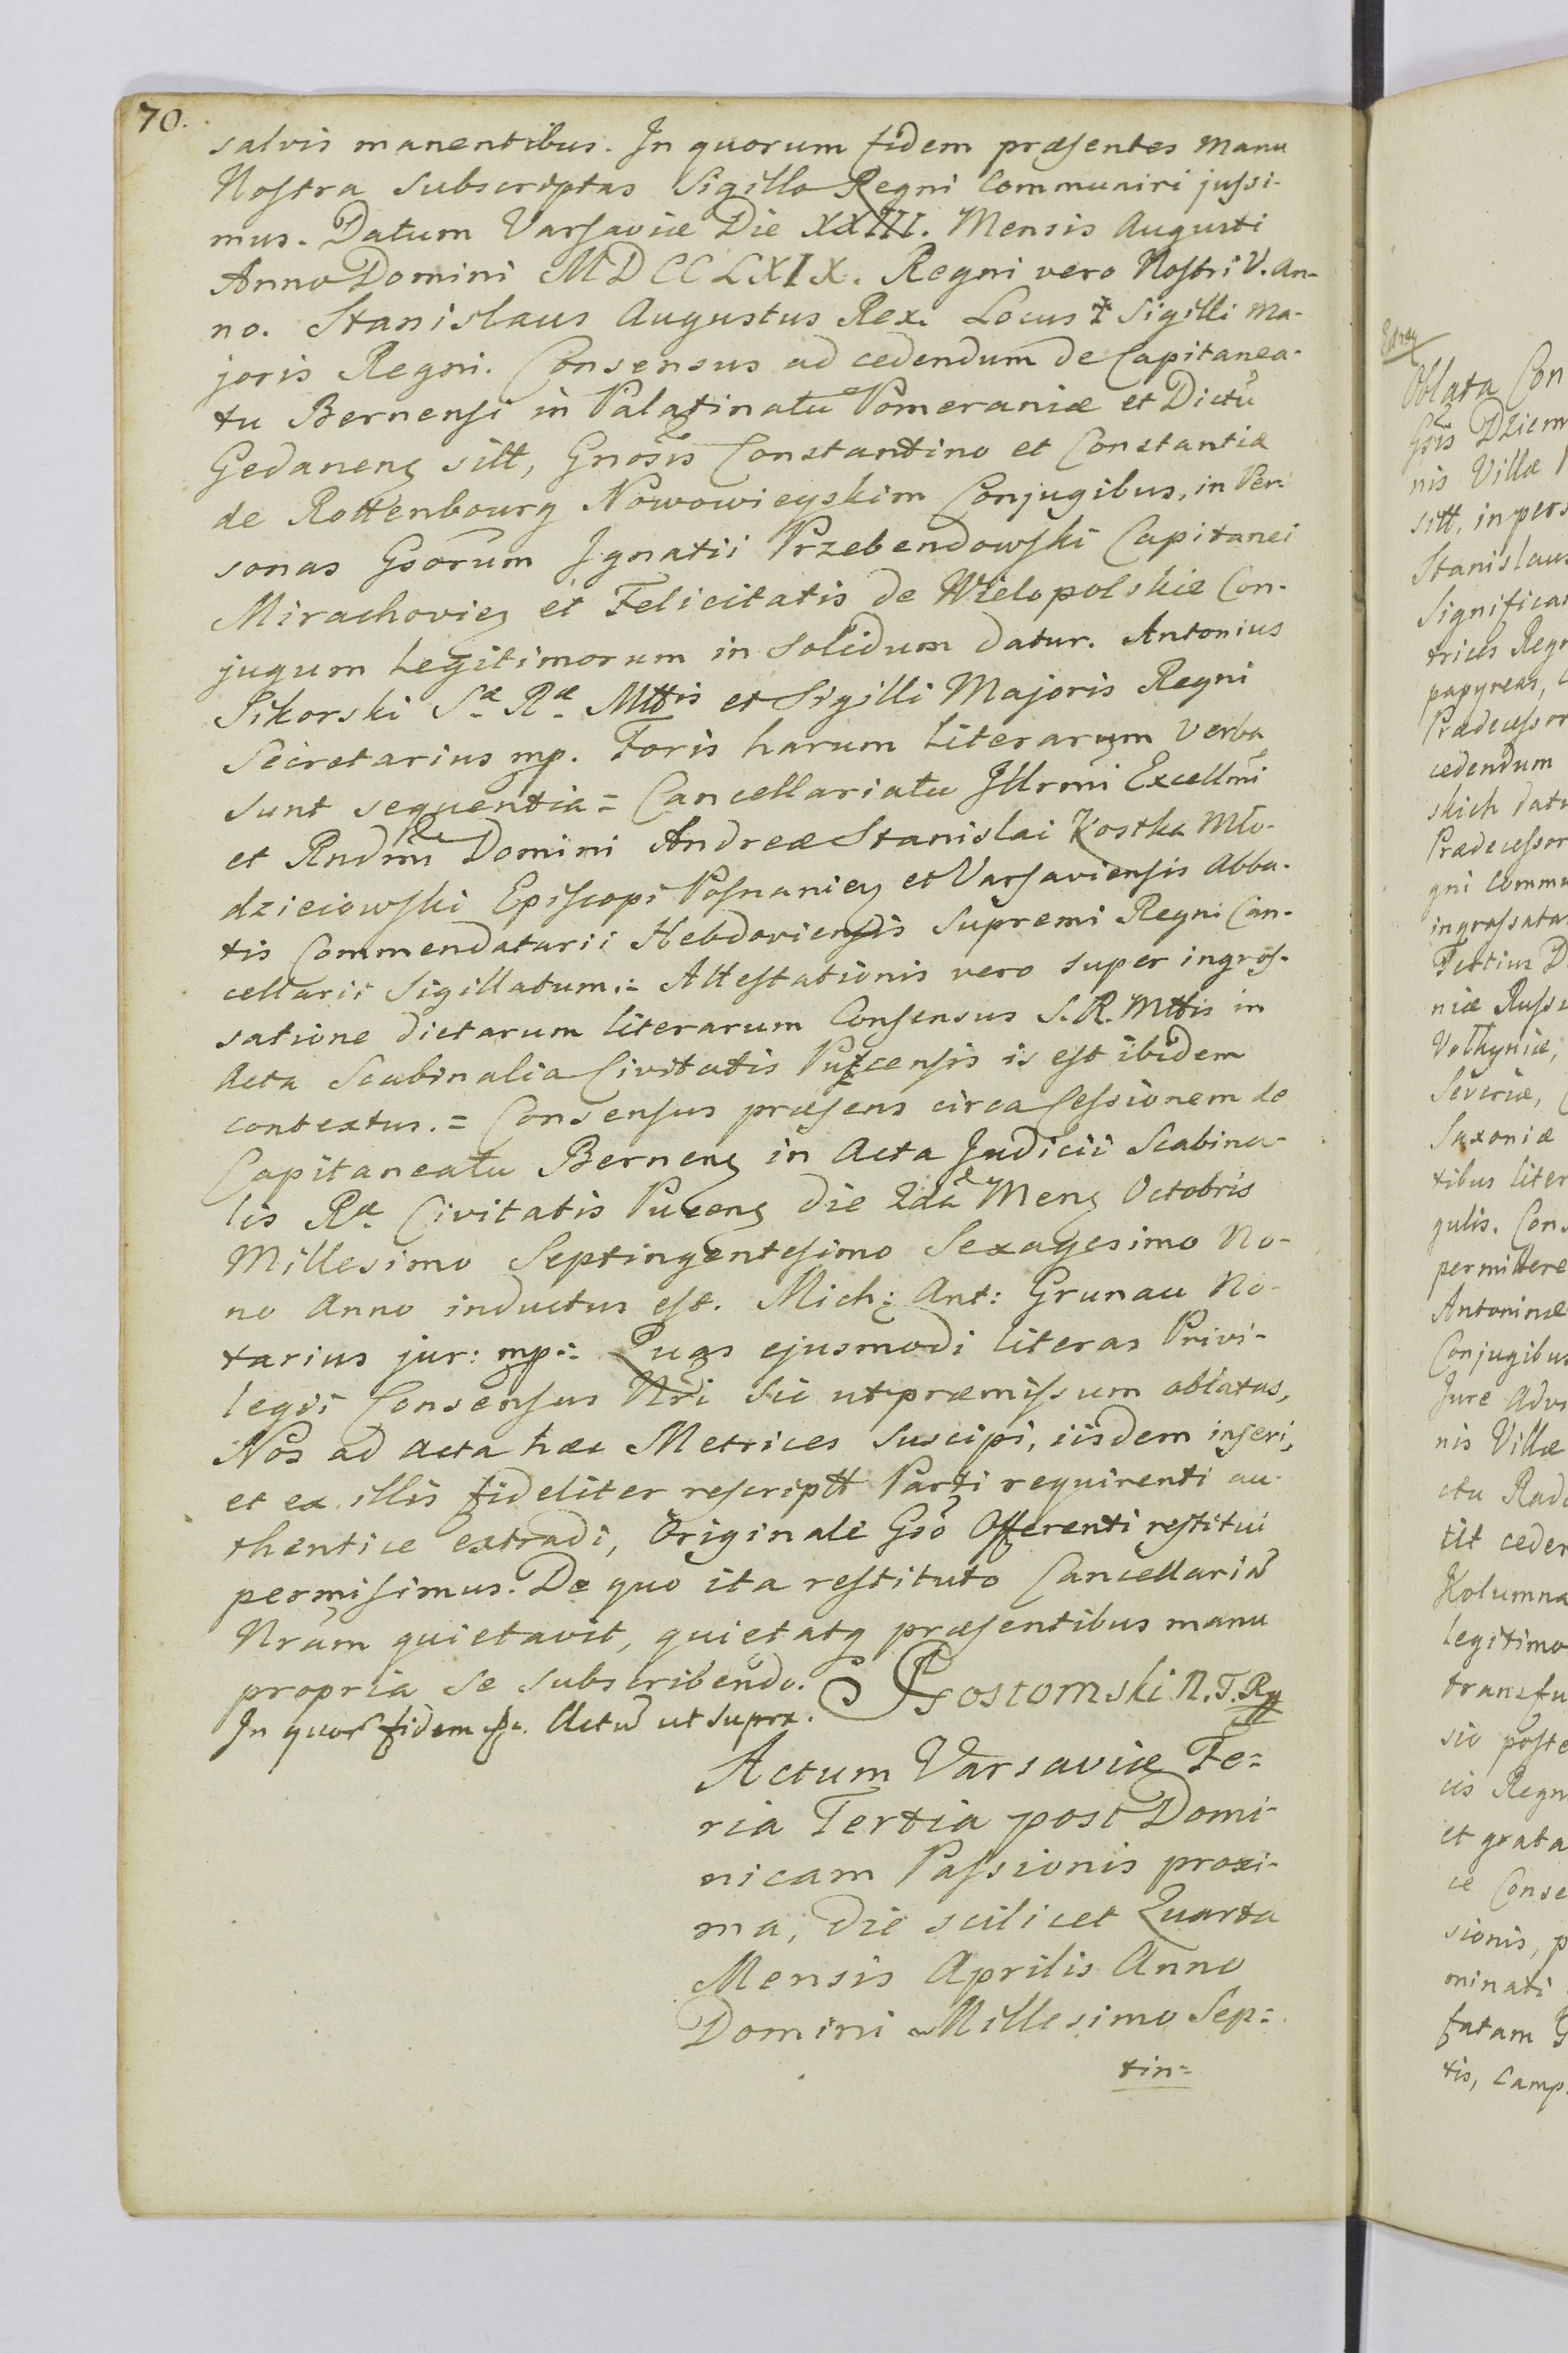 70.
salvis manentibus. In quorum fidem præsentes Manu
Nostra Subscriptas Sigillo Regni Communiri jussi-
mus. Datum Varsaviæ Die XXIII. Mensis Augusti
Anno Domini MDCCLXIX. Regni vero Nostri V. An-
no. Stanislaus Augustus Rex. Locus ‡ Sigilli Ma-
joris Regni. Consensus ad cedendum de Capitanea-
tu Bernensi in Palatinatu Pomeraniæ et Dictu
Gedanens sitt, Gnosis Constantino et Constantiæ
de Rottenbourg Nowowieyskim Conjugibus, in Per-
sonas Gsorum Ignatii Przebendowski Capitanei
Mirachovieñ et Felicitatis de Wielopolskie Con-
jugum Legitimorum in Solidum datur. Antonius
Sikorski Sæ Ræ Mttis et Sigilli Majoris Regni
Secretarius mp. Foris harum Literarum Verba
sunt sequentia = Cancellariatu Illrmi Excellmi
et Rndmi Domini Andreæ Stanislai Kostka Mło-
dzieiowski Episcopi Posnanieñ et Varsaviensis Abba-
tis Commendatarii Hebdoviensis Supremi Regni Can-
cellarii Sigillatum.= Attestationis vero super ingros-
satione dictarum literarum Consensus S. R. Mttis in
Acta Scabinalia Civitatis Puccensis is est ibidem
contextus. = Consensus præsens circa Cessionem de
Capitaneatu Berneng in Acta Judicii Scabina-
lis Ræ Civitatis Puceng die 2da Meng Octobris
Millesimo Septingentesimo Sexagesimo No-
no Anno inductus est. Mich: Ant: Grunau No-
tarius jur: mp.= Quas ejusmodi literas Privi-
legii Consensus Nri Sic ut præmissum oblatas,
Nos ad acta hæc Metrices Suscipi, iisdem inseri,
et ex illis fideliter rescriptt Parti requirenti au-
thentice extradi, Originale Gso Offerenti restitui
permisimus. De quo ita restituto Cancellariã
Nram quietavit, quietatq præsentibus manu
propria se subscribendo. J Gostomski N. T. R
In quor fidem &. Actũ ut supra.
Actum Varsaviæ Fe=
ria Tertia post Domi-
nicam Passionis proxi-
ma, Die scilicet Quarta
Mensis Aprilis Anno
Domini Millesimo Sep=
tin=
Oblata Con
Gsis Dziem
nis Villæ
sitt, in pers
Stanislaus
Significa
trices Regn
papyreas,
Prædecessor
cedendum
skich datu
Prædecessor
gni Commu
ingrossatas
Tertius D
niæ Russi
Volhyniæ,
Severiæ,
Saxoniæ
tibus liter
gulis. Cons
permittere
Antoninæ
Conjugibus
Jure Advi
nis Villæ
ctu Rado
tit ceder
Kolumna
legitimo
transfu
sio poste
cis Regn
et grata
ce Conse
sionis, p
minati
fatam G
tis, Camp